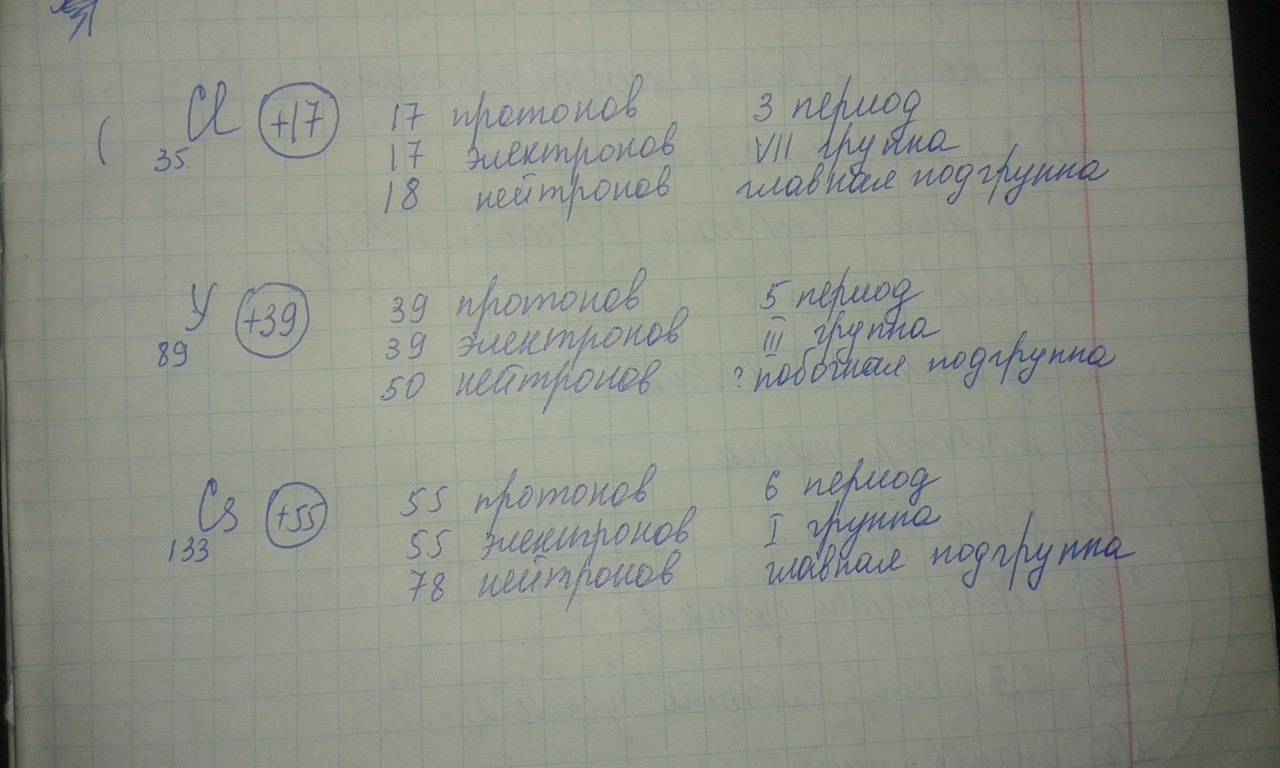 Cl +17 17 протонов 3 период
35 17 электронов VII группа
18 нейтронов главная подгруппа
У +39 39 протонов 5 период
89 39 электронов III группа
50 нейтронов ? побочная подгруппа
Cs +55 55 протонов 6 период
133 55 электронов I группа
78 нейтронов главная подгруппа